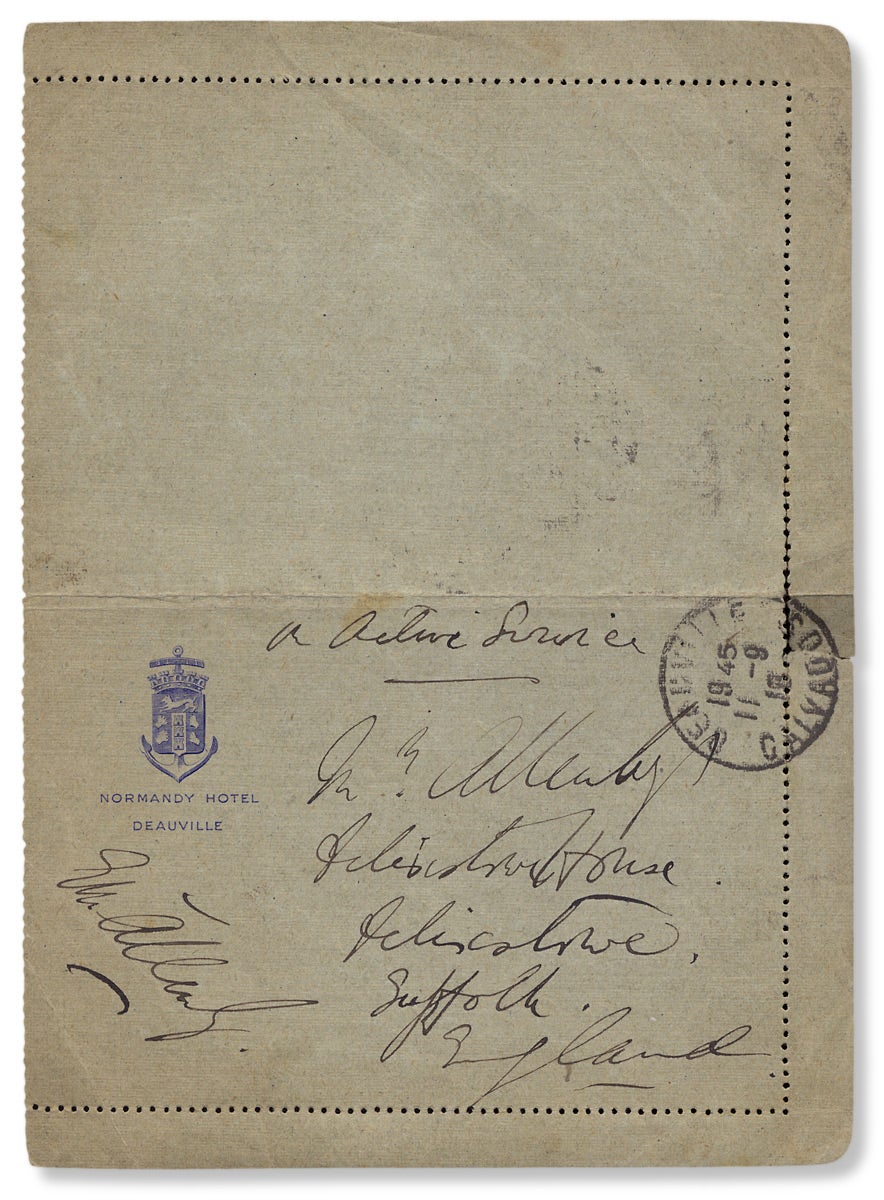 On Active Service
Mrs Allenby
Felixstowe House.
Felixstowe,
Suffolk.
England
NORMANDY HOTEL
DEAUVILLE
Allenby.
DEAUVILLE CALVADOS
19 45
11 - 9